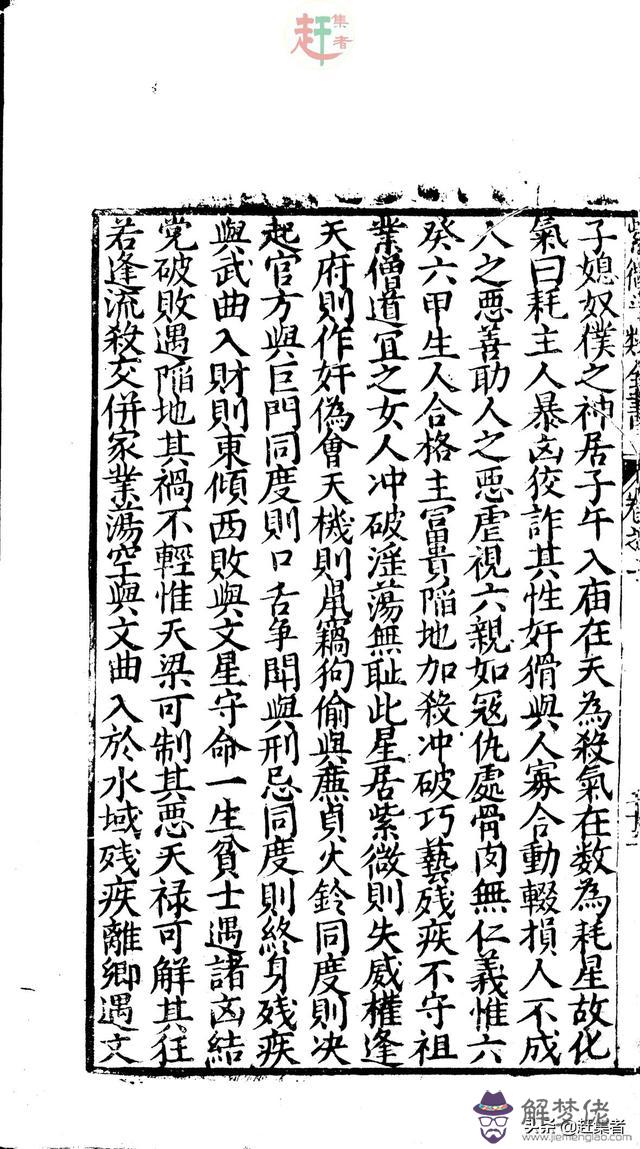 赶集者
子媳奴僕之神居子午入庙在天為殺氣在数為耗星故化
氣曰耗主人暴凶狡詐其性奸猾與人寡合動輟損人不成
人之惡善助人之惡虐視六親如冦仇處骨肉無仁義惟六
癸六甲生人合格主冨貴陥地加殺冲破巧藝残疾不守祖
業僧道宜之女人冲破淫蕩無耻此星居紫微則失威權逢
天府則作奸偽會天機則鼠竊狗偷與亷貞火鈴同度則决
起官方與巨門同度則口舌争閗與刑忌同度則終身残疾
與武曲入財則東傾西敗與文星守命一生貧士遇諸凶結
党破敗遇陥地其禍不輕惟天梁可制其惡天禄可解其狂
若逢流殺交併家業蕩空與文曲入於水域残疾離鄉遇文
解梦佬
头条@赶集者
www.jiemenglao.com